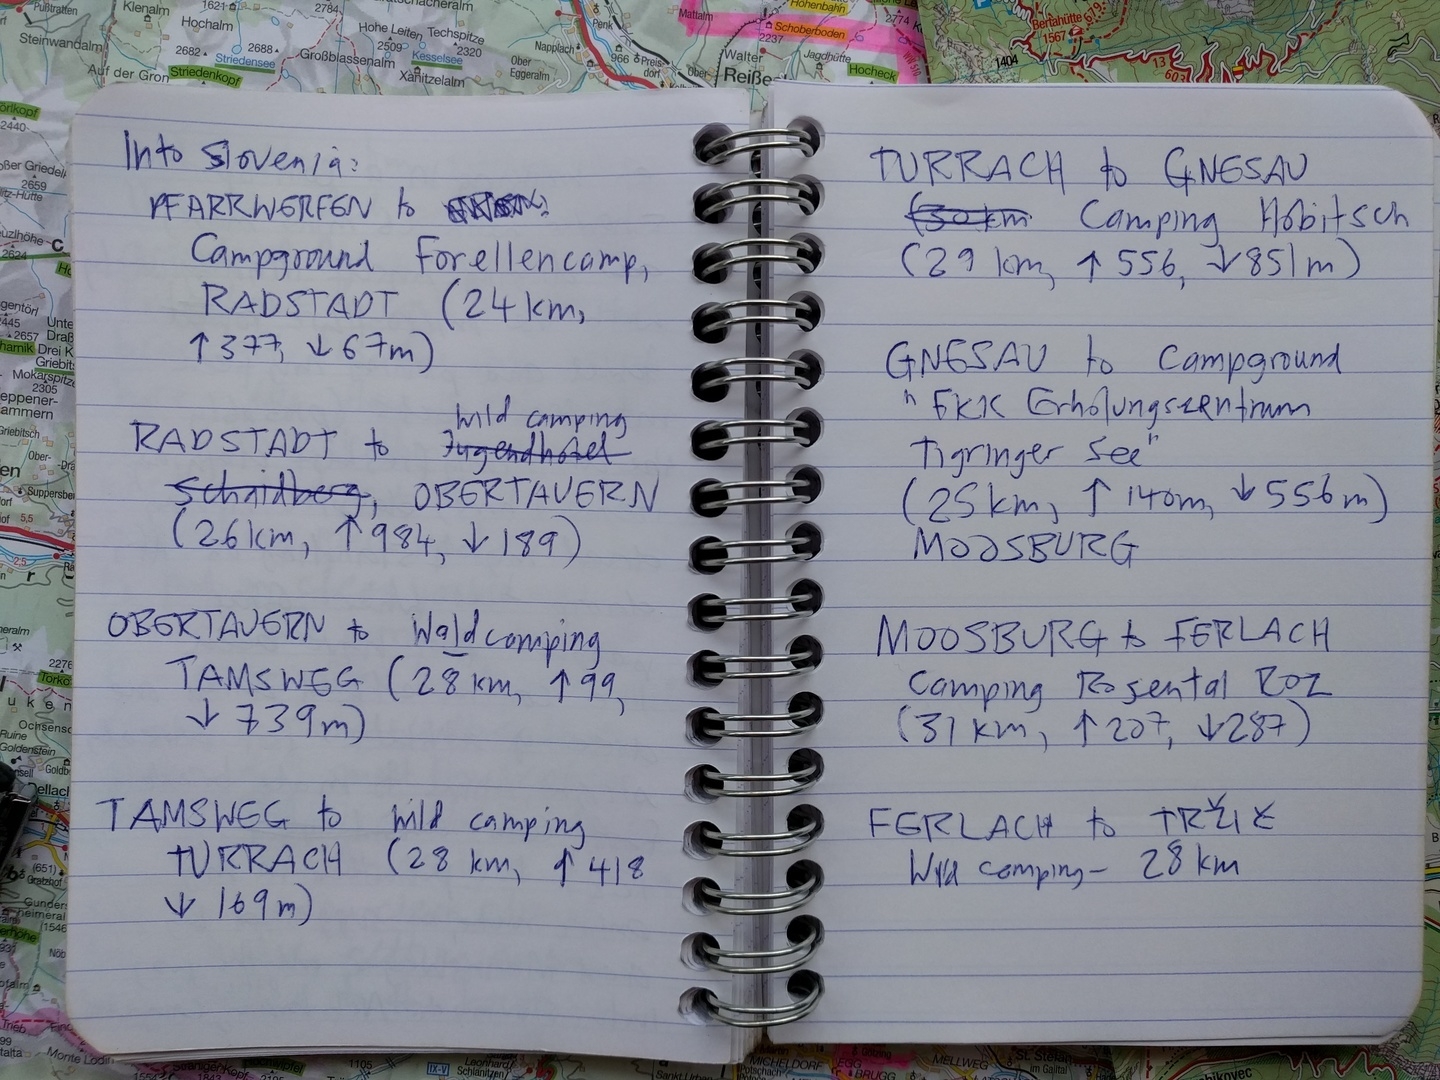 Into Slovenia:
PFARRWERFEN to
Campground Forellencamp,
RADSTADT (24 km,
↑377, ↓67m)
wild camping
RADSTADT to Jugendhotel
Schaidberg, OBERTAUERN
(26km, ↑984, ↓189)
OBERTAUERN to Waldcamping
TAMSWEG (28 km, ↑99,
↓739m)
TAMSWEG to wild camping
TURRACH (28 km, ↑418
↓169m)
TURRACH to GNESAU
(30km Camping Hobitsch
(29 km, ↑556, ↓851m)
GNESAU to Campground
"FKK Erholungszentrum
Tigringer See"
(25km, ↑140m, ↓556m)
MOOSBURG
MOOSBURG to FERLACH
Camping Rosental ROZ
(31 km, ↑207, ↓287)
FERLACH to TRŽIČ
Wild camping - 28 km
Klenalm
1621
2784
Hochalm
Hohe Leiten
2509
Techspitze
2320
Steinwandalm
2682
2688
Striedensee
Großblassenalm
Kesselsee
Auf der Gron
Striedenkopf
Xanitzelalm
Napplach
Ober-
Eggeralm
Penk
966
Preis-
dorf
Mattalm
Höhenbahn
Schoberboden
2237
2774
Walter
Jagdhütte
Reiße
Hocheck
Bertahütte
1567
679
1404
13
603
2440
2659
2624
2445
2657
Drei K
Mokarspitze
2305
eppener-
ammern
Griebitsch
Suppersbe
2276
Ochsens
Ruine
Goldenstein
Dellach
(651)
1546
Monte Lodin
1105
IX-V
Schlanitzen
MICHELDORF
EGG
BRUGG
MELLWEG
St. Stefan
im Gailtal